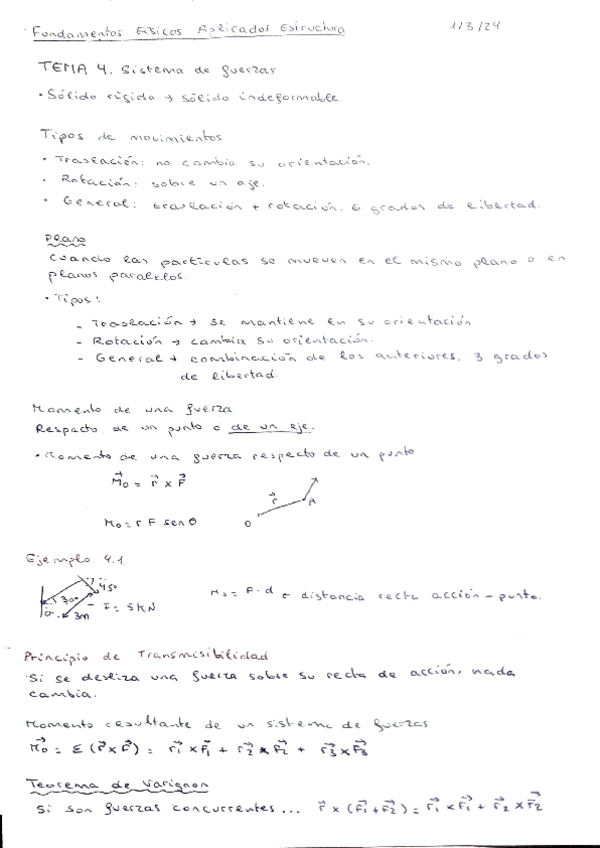 Fundamentos Físicos Aplicados Estructura 1/3/24
TEMA 4. Sistema de fuerzas
• Sólido rígido → sólido indeformable.
Tipos de movimientos
• Traslación: no cambia su orientación.
• Rotación: sobre un eje.
• General: traslación + rotación. 6 grados de libertad.
Plano
Cuando las partículas se mueven en el mismo plano o en
planos paralelos.
• Tipos:
- Traslación → se mantiene en su orientación
- Rotación → cambia su orientación.
- General → combinación de los anteriores. 3 grados
de libertad.
Momento de una fuerza
Respecto de un punto o de un eje.
• Momento de una fuerza respecto de un punto
M⃗o = r⃗ x F⃗
r⃗
A
O
Mo = r F sen θ
Ejemplo 4.1
45º
30º
= 5 kN
3m
Mo = F · d → distancia recta acción - punto.
Principio de Transmisibilidad
Si se desliza una fuerza sobre su recta de acción, nada
cambia.
Momento resultante de un sistema de fuerzas
M⃗o = Σ (r⃗ x F⃗) = r⃗1 x F⃗1 + r⃗2 x F⃗2 + r⃗3 x F⃗3
Teorema de Varignon
Si son fuerzas concurrentes... r⃗ x (F⃗1 + F⃗2) = r⃗1 x F⃗1 + r⃗2 x F⃗2